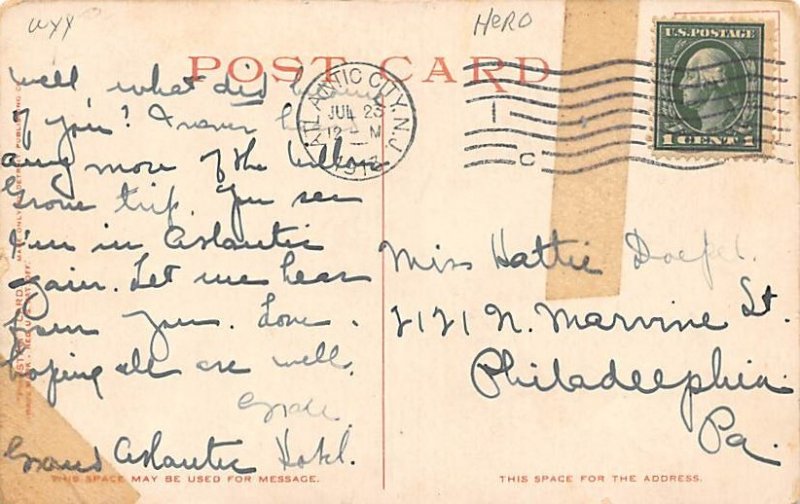 wyx
HERO
POST CARD
U.S. POSTAGE
1 CENT 1
ATLANTIC CITY, N.J.
JUL 23
12 M
1913
C
Well, what did become
of you? I never h
any more of the Willow
Grove trip. You see
I'm in Atlantic
again. Let me hear
from you. Love.
hoping all are well.
Grace.
Grand Atlantic Hotel.
Miss Hattie Doepel.
2121 N. Marvine St.
Philadeephia.
Pa.
THIS SPACE MAY BE USED FOR MESSAGE.
THIS SPACE FOR THE ADDRESS.